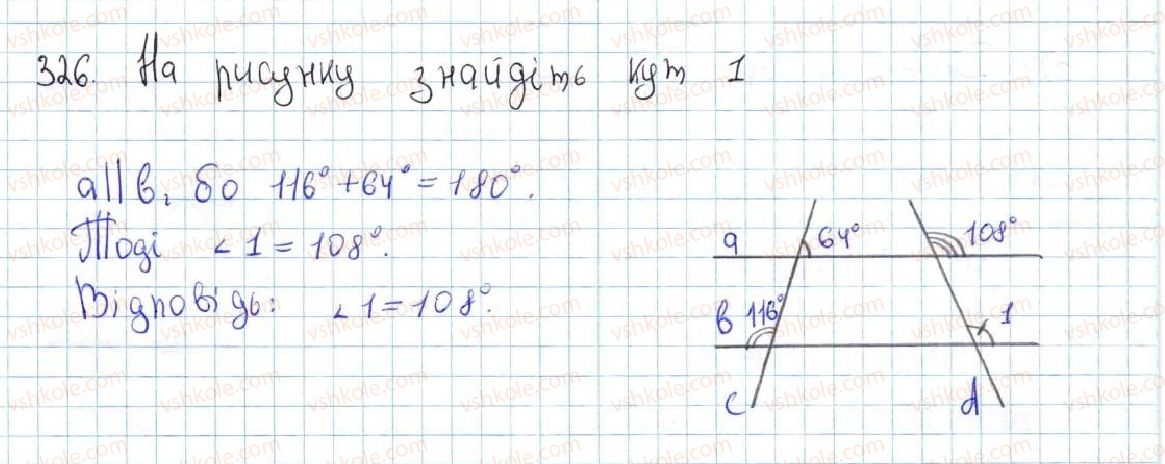 326. На рисунку знайдіть кут 1
a||b, бо 116°+64°=180°.
Тоді ∠1=108°.
Відповідь: ∠1=108°.
a 64° 108°
b 116° 1
c d
vshkole.com